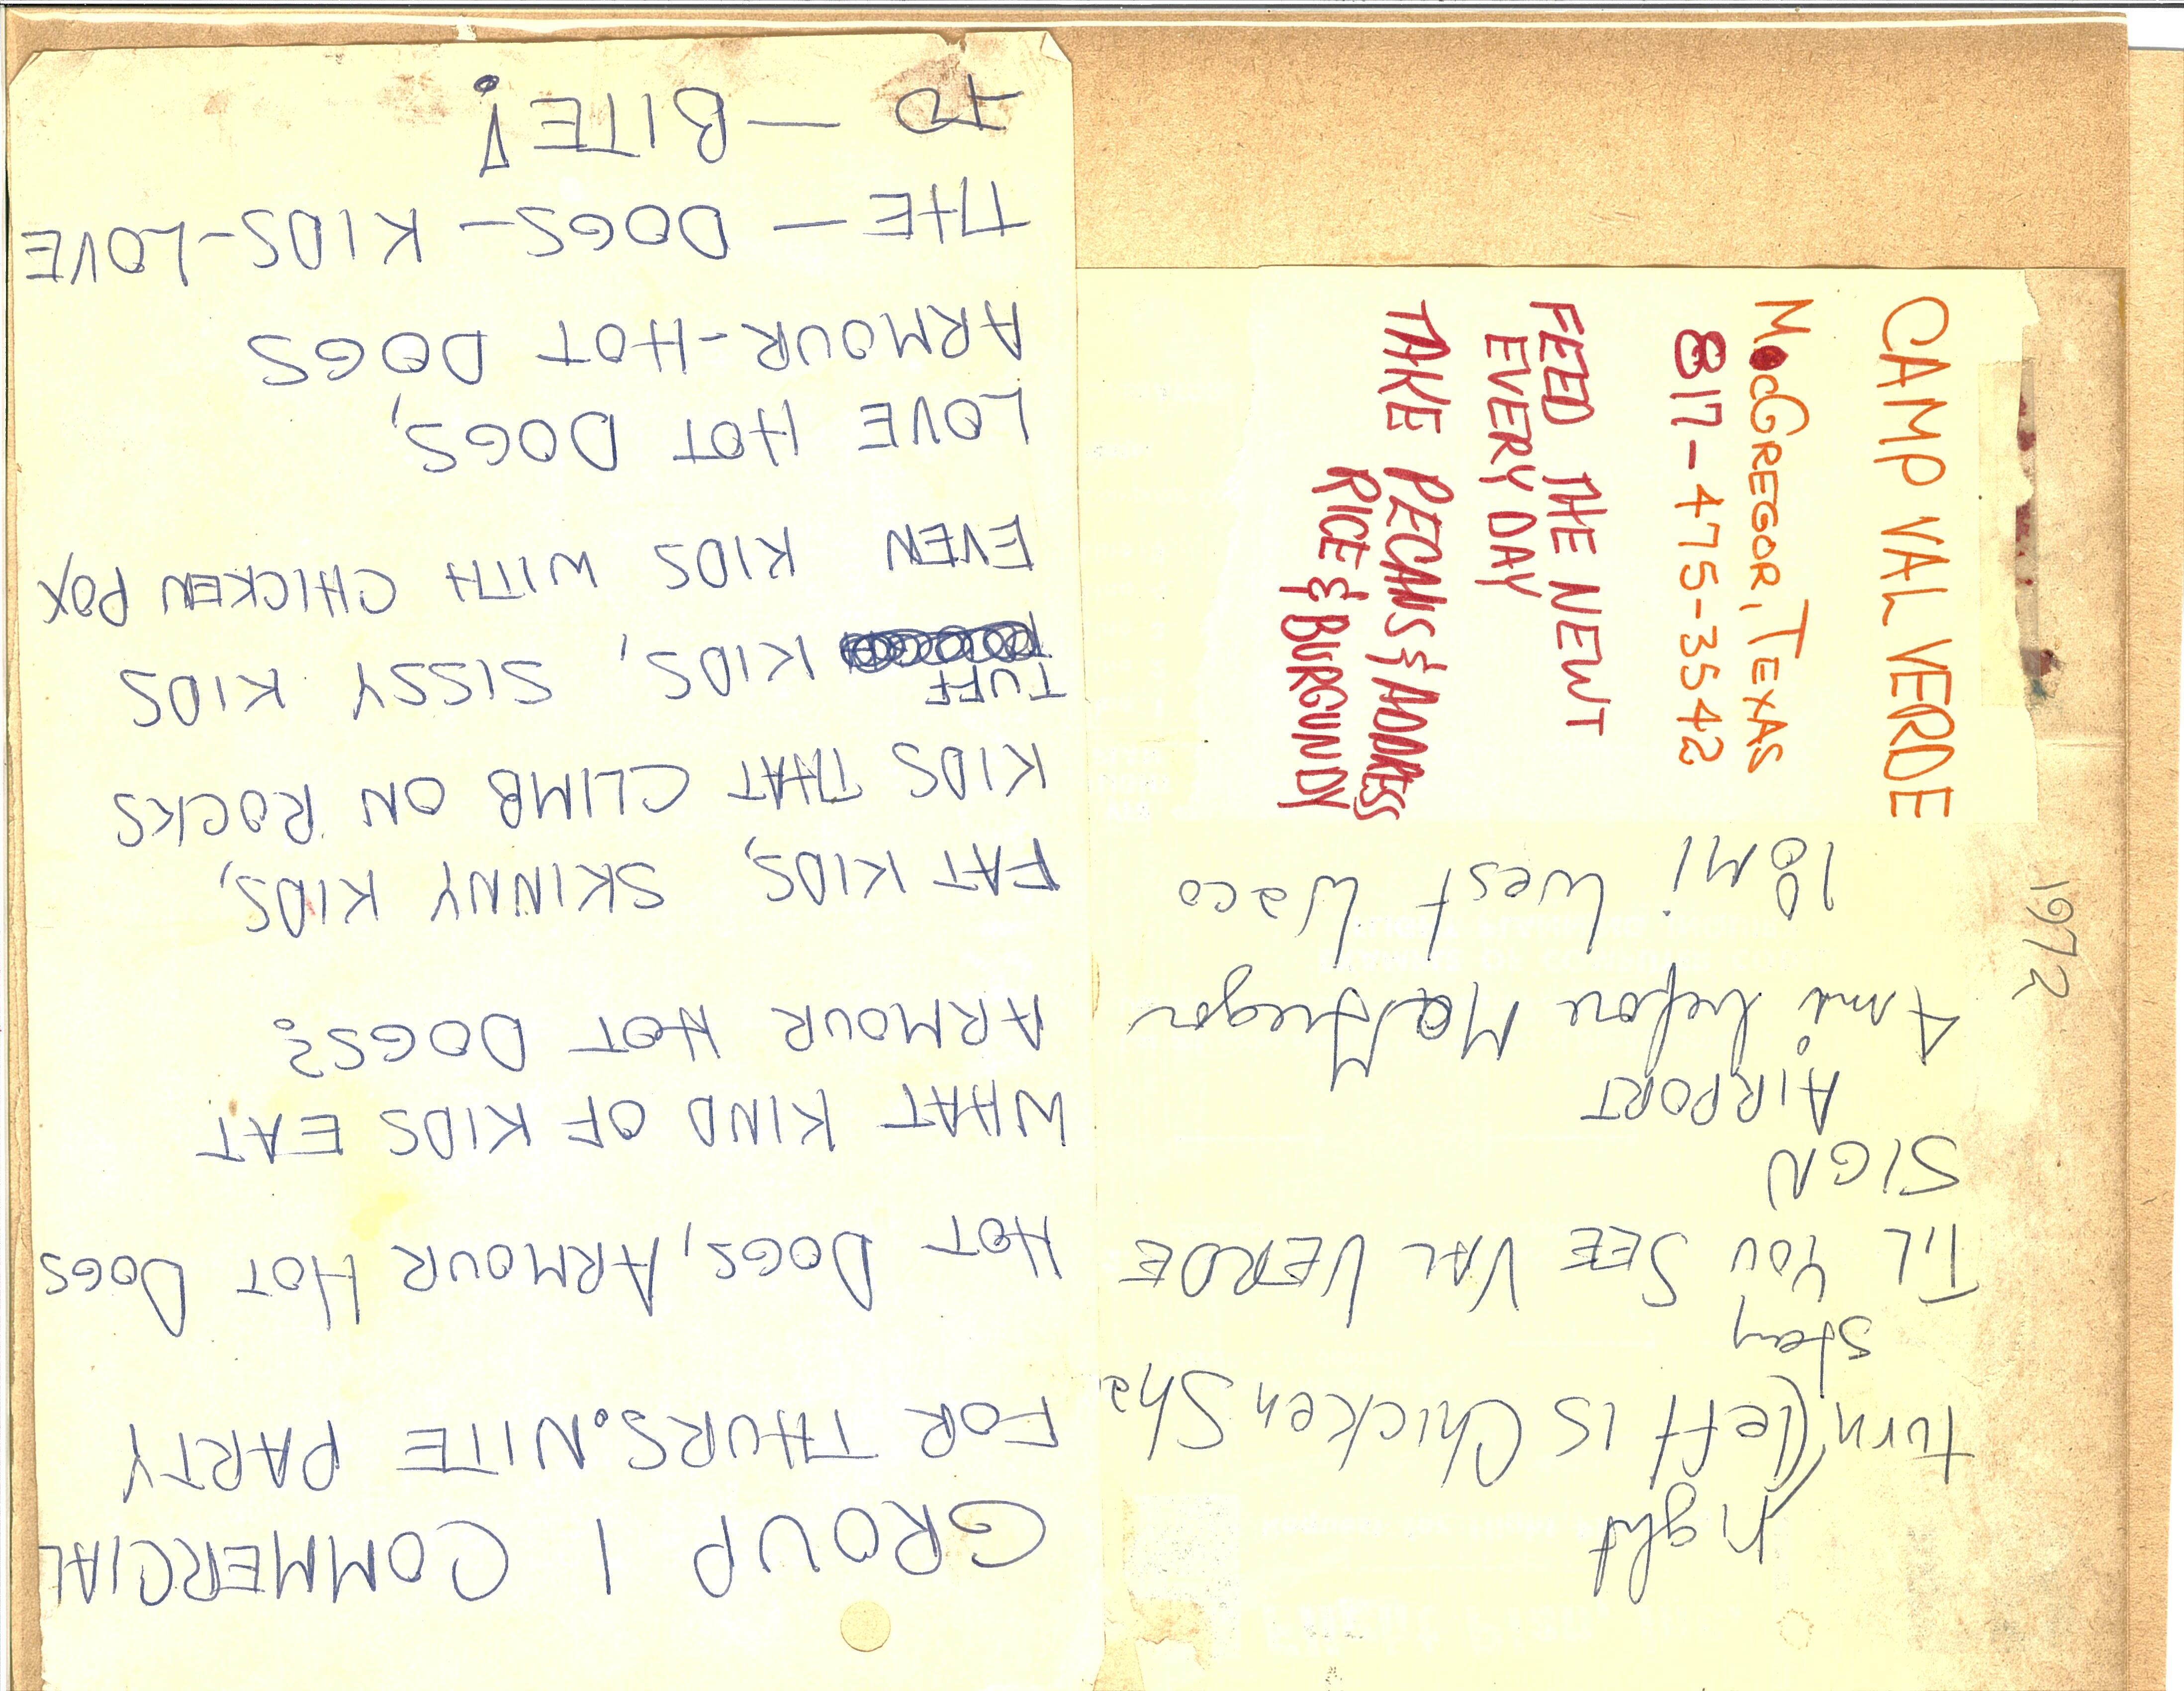 GROUP 1 COMMERCIAL
FOR THURS. NITE PARTY
HOT DOGS, ARMOUR HOT DOGS
WHAT KIND OF KIDS EAT
ARMOUR HOT DOGS?
FAT KIDS, SKINNY KIDS,
KIDS THAT CLIMB ON ROCKS
TUFF KIDS, SISSY KIDS
EVEN KIDS WITH CHICKEN POX
LOVE HOT DOGS,
ARMOUR-HOT DOGS
THE — DOGS — KIDS-LOVE
TO — BITE!
right
turn (left is Chicken Sha
stay
TIL YOU SEE VAL VERDE
SIGN
AIRPORT
4 mi. before MacGregor
18 MI. West Waco
CAMP VAL VERDE
McGREGOR, TEXAS
817-475-3542
FEED THE NEWT
EVERY DAY
TAKE PECANS & ADDRESS
RICE & BURGUNDY
1972